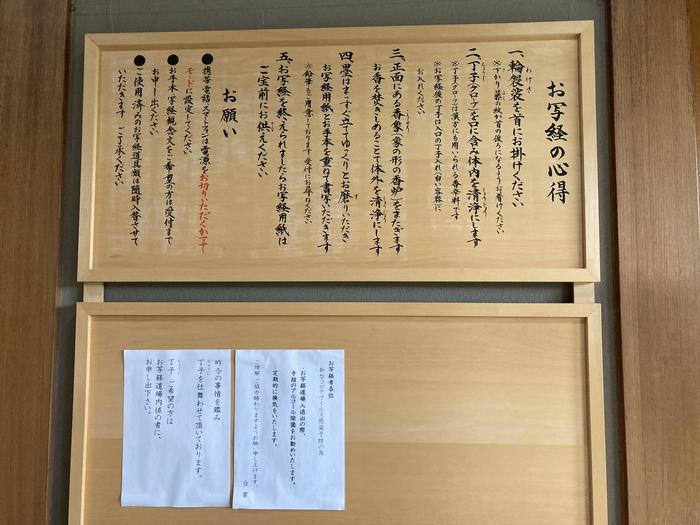 お写経の心得
一、輪袈裟を首にお掛けください
※下がり藤の紋が首の後ろになるようお着けください
二、丁子(クローブ)を口に含み体内を清浄にします
※丁子(クローブ)は漢方にも用いられる香辛料です
※お写経後の丁子は入口の丁子入れ(白い容器)に
お入れください
三、正面にある香象(象の形の香炉)をまたぎます
お香を焚きしめることで体外を清浄にします
四、墨はまっすぐ立ててゆっくりとお磨りいただき
お写経用紙とお手本を重ねて書写いただきます
※鉛筆もご用意しております 受付にお尋ねください
五、お写経を終えられましたらお写経用紙は
ご宝前にお供えください
お願い
●携帯電話・スマートフォンは電源をお切りいただくかマナー
モードに設定してください
●お手本「写経観念文」をご希望の方は受付まで
お申し出ください
●ご使用済みのお写経道具類は随時入替させて
いただきます ご了承ください
お写経者各位
新型コロナウイルス感染予防の為
・お写経道場入退出の際、
手指のアルコール除菌をお勧めいたします。
・定期的に換気をいたします。
ご理解ご協力賜わりますようお願い申し上げます。
合掌
昨今の事情を鑑み
丁子を仕舞わせて頂いております。
丁子、ご希望の方は
お写経道場内係の者に、
お申し出下さい。